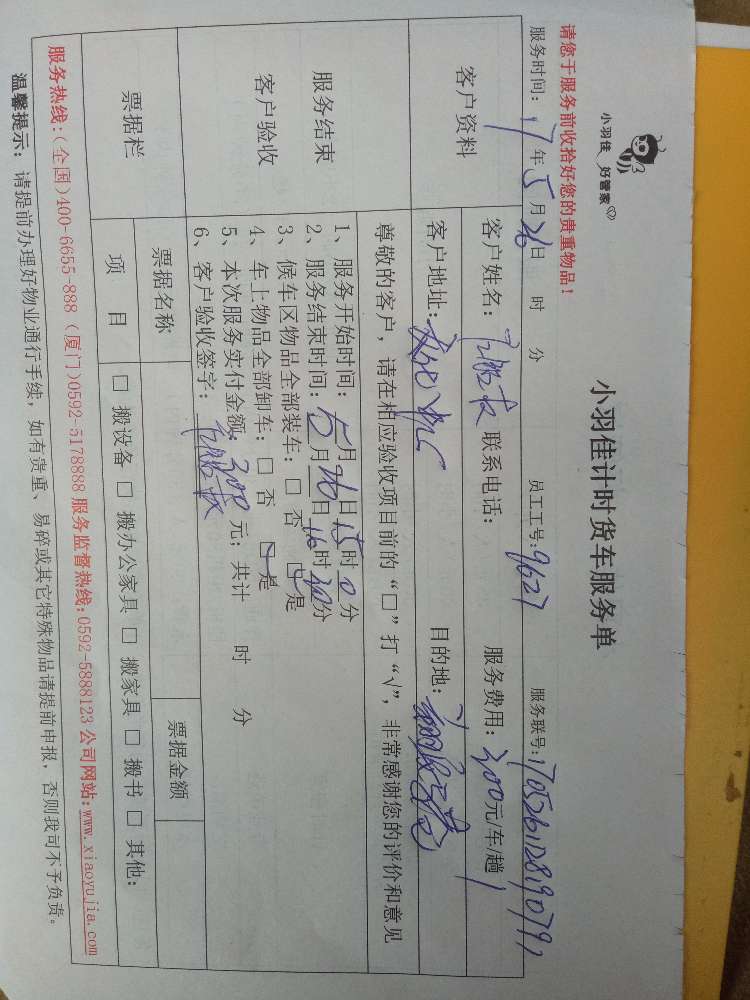 小羽佳 好管家
小羽佳计时货车服务单
请您于服务前收拾好您的贵重物品!
服务时间: 17年5月26日 时 分 员工工号: 9627 服务联号:
客户资料
客户姓名: 联系电话: 服务费用: 300元/车/趟
客户地址: 目的地:
服务结束
客户验收
尊敬的客户,请在相应验收项目前的“□”打“√”,非常感谢您的评价和意见
1、服务开始时间: 5月26日15时0分
2、服务结束时间: 5月26日16时30分
3、候车区物品全部装车: □ 否 □ 是
4、车上物品全部卸车: □ 否 □ 是
5、本次服务实付金额: 300元; 共计 时 分
6、客户验收签字:
票据栏
票据名称 票据金额
项 目 □ 搬设备 □ 搬办公家具 □ 搬家具 □ 搬书 □ 其他:
服务热线:(全国)400-6655-888 (厦门)0592-5178888 服务监督热线:0592-5888123 公司网站:www.xiaoyujia.com
温馨提示: 请提前办理好物业通行手续,如有贵重、易碎或其它特殊物品请提前申报,否则我司不予负责。